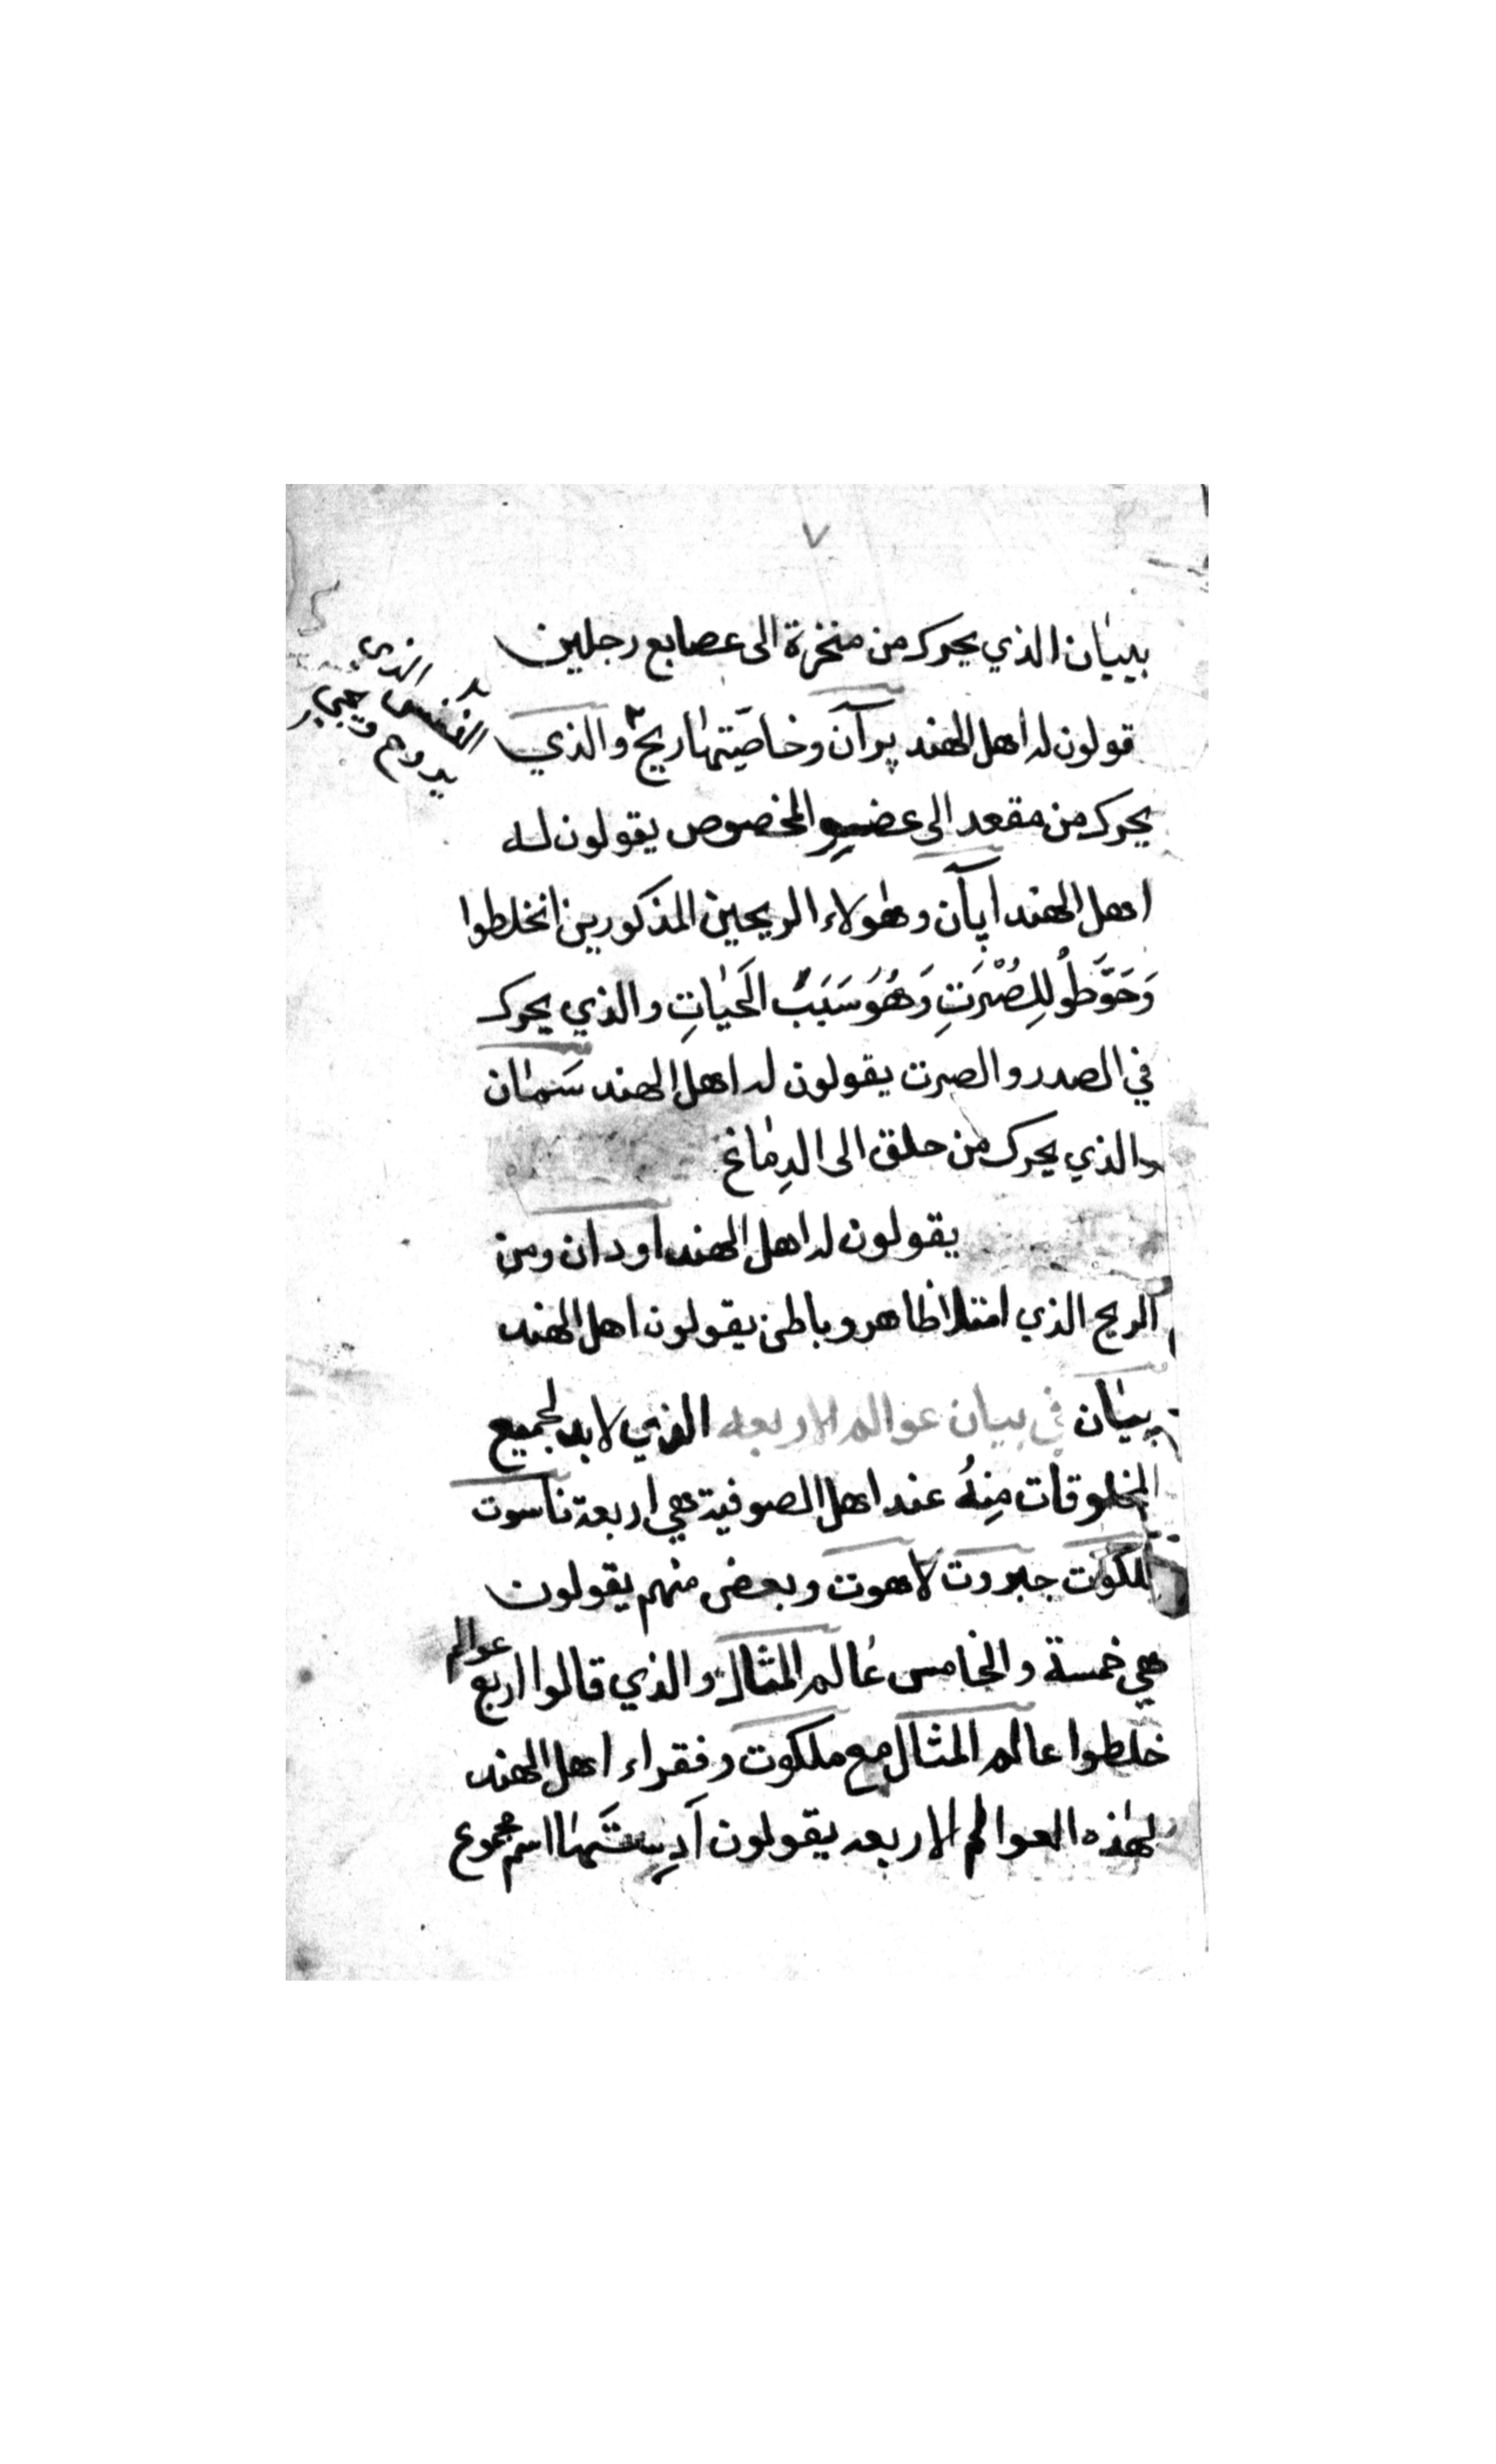 ٧
بيبيان الذي يحرك من منخرة الى عصابع رجلين
قولون له اهل الهند پرآن وخاصيتها ريح٢ والذي
الذي
النفس يجي
يروح و
يحرك من مقعد الى عضو المخصوص يقولون له
اهل الهند اپآن وهٰولاء الريحين المذكورين انخلطوا
وَحَوَّطُو لِلصُرَتِ وَهُوَ سَبَبُ الحَيٰاتِ والذي يحرك
في الصدر والصرت يقولون له اهل الهند سَمٰان
والذي يحرك من حلق الى الدِمٰاغ
يقولون له اهل الهند اودان ومن
الريح الذي امتلا ظاهر وباطن يقولون اهل الهند
بيٰان في بيان عوالم الاربعه الذي لابد لجميع
المخلوقات مِنهُ عند اهل الصوفية هي اربعة ناسوت
ملكوت جبروت لاهوت وبعض منهم يقولون
هي خمسة والخامس عٰالم المثال والذي قالوا اربع عوالم
خلطوا عالم المثال مع ملكوت وفقراء اهل الهند
لهٰذه العوالم الاربعه يقولون آدِستَهٰا اسم مجموع